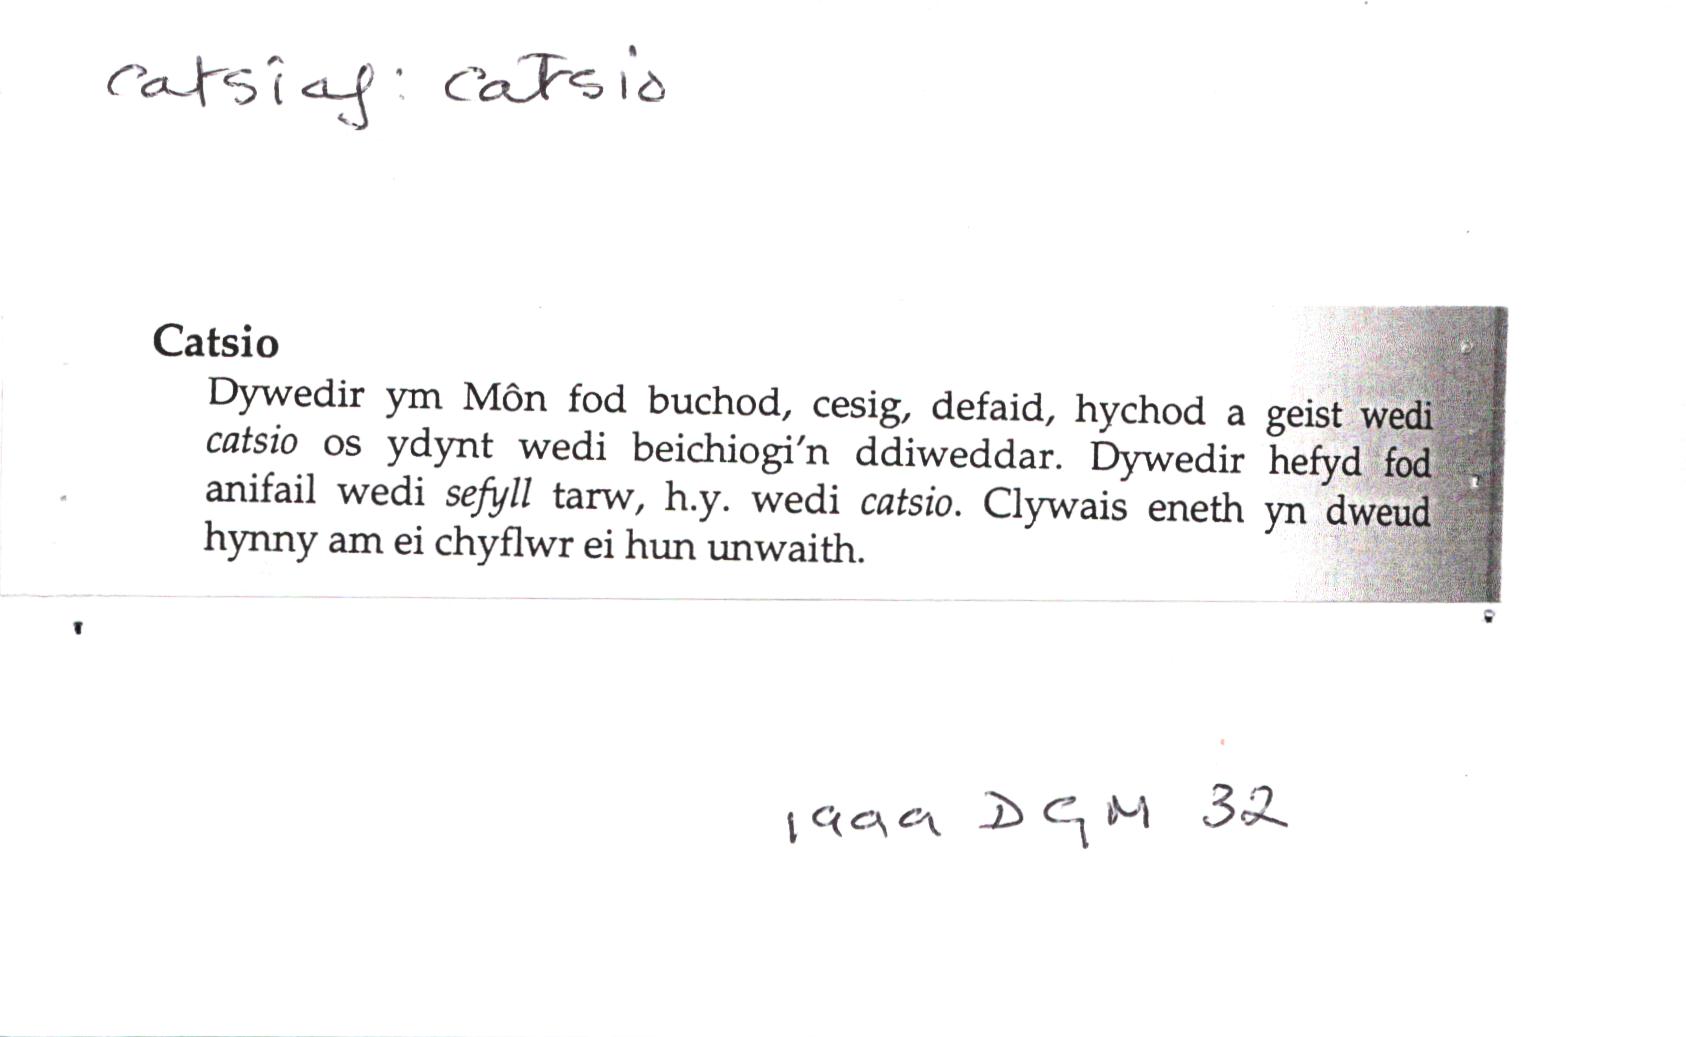 catsiaf: catsio
Catsio
Dywedir ym Môn fod buchod, cesig, defaid, hychod a geist wedi
catsio os ydynt wedi beichiogi'n ddiweddar. Dywedir hefyd fod
anifail wedi sefyll tarw, h.y. wedi catsio. Clywais eneth yn dweud
hynny am ei chyflwr ei hun unwaith.
1999 DGM 32